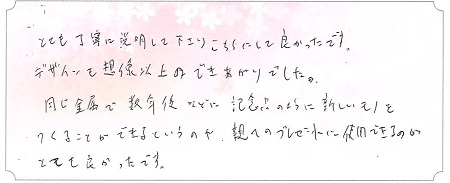 とても丁寧に説明して下さりこちらにして良かったです。
デザインも想像以上のできあがりでした。
同じ金属で数年後などに記念品のように新しいモノを
つくることができるというのや、親へのプレゼントに使用できるのが
とても良かったです。